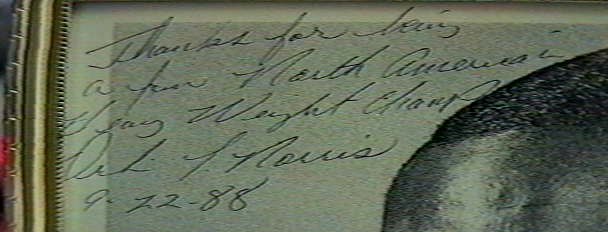 Thanks for being
a fan North American
Heavy Weight Champ
Orlin Norris
9-22-88